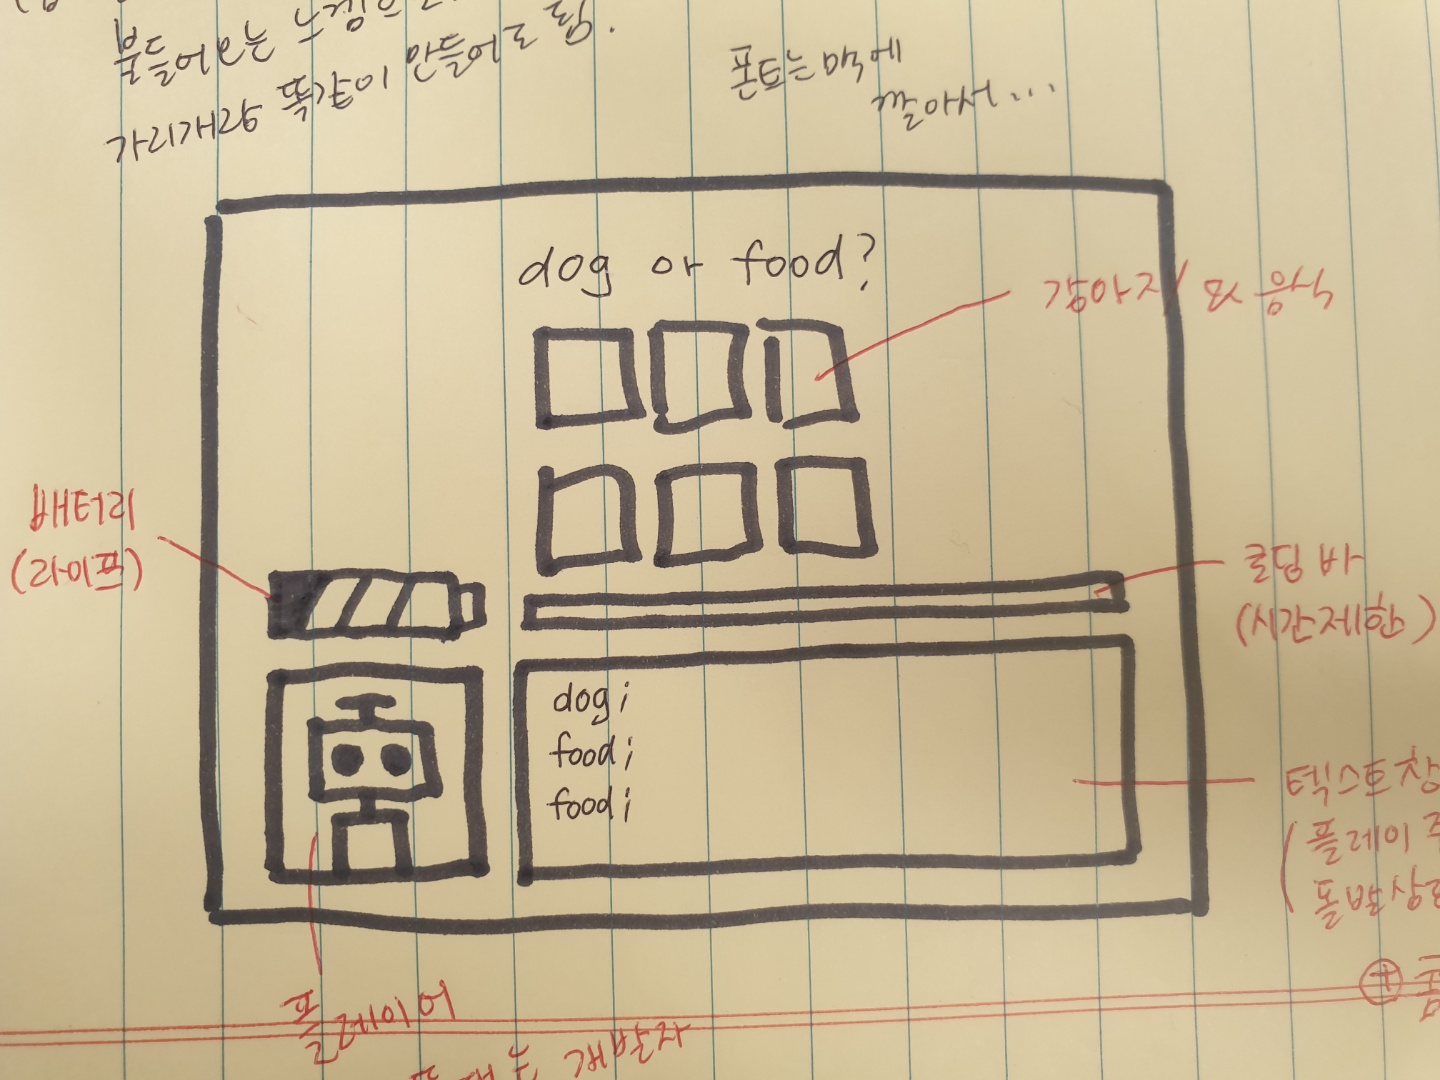 불들어오는
가리개랑 똑같이 만들어도 됨.
폰트는 맥에
깔아서...
dog or food?
강아지 or 음식
배터리
(라이프)
로딩 바
(시간제한)
dog;
food;
food;
텍스트창
(플레이
돌발상
플레이어
개발자